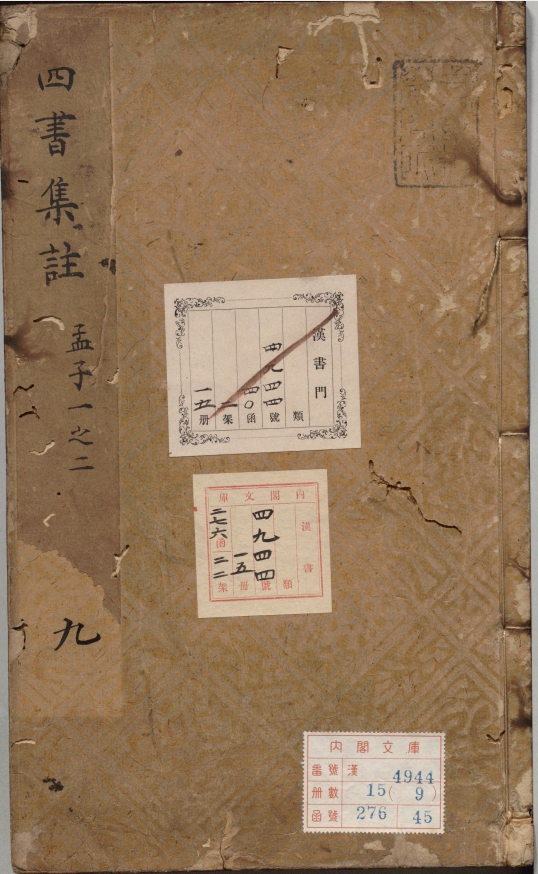 四書集註
孟子一之二
九
漢書門
類
四九四四號
四〇函
二架
一五册
内閣文庫
漢書
類
四九四四號
一五冊
二七六函
二二架
内閣文庫
番號 漢 4944
册數 15( 9 )
函號 276 45